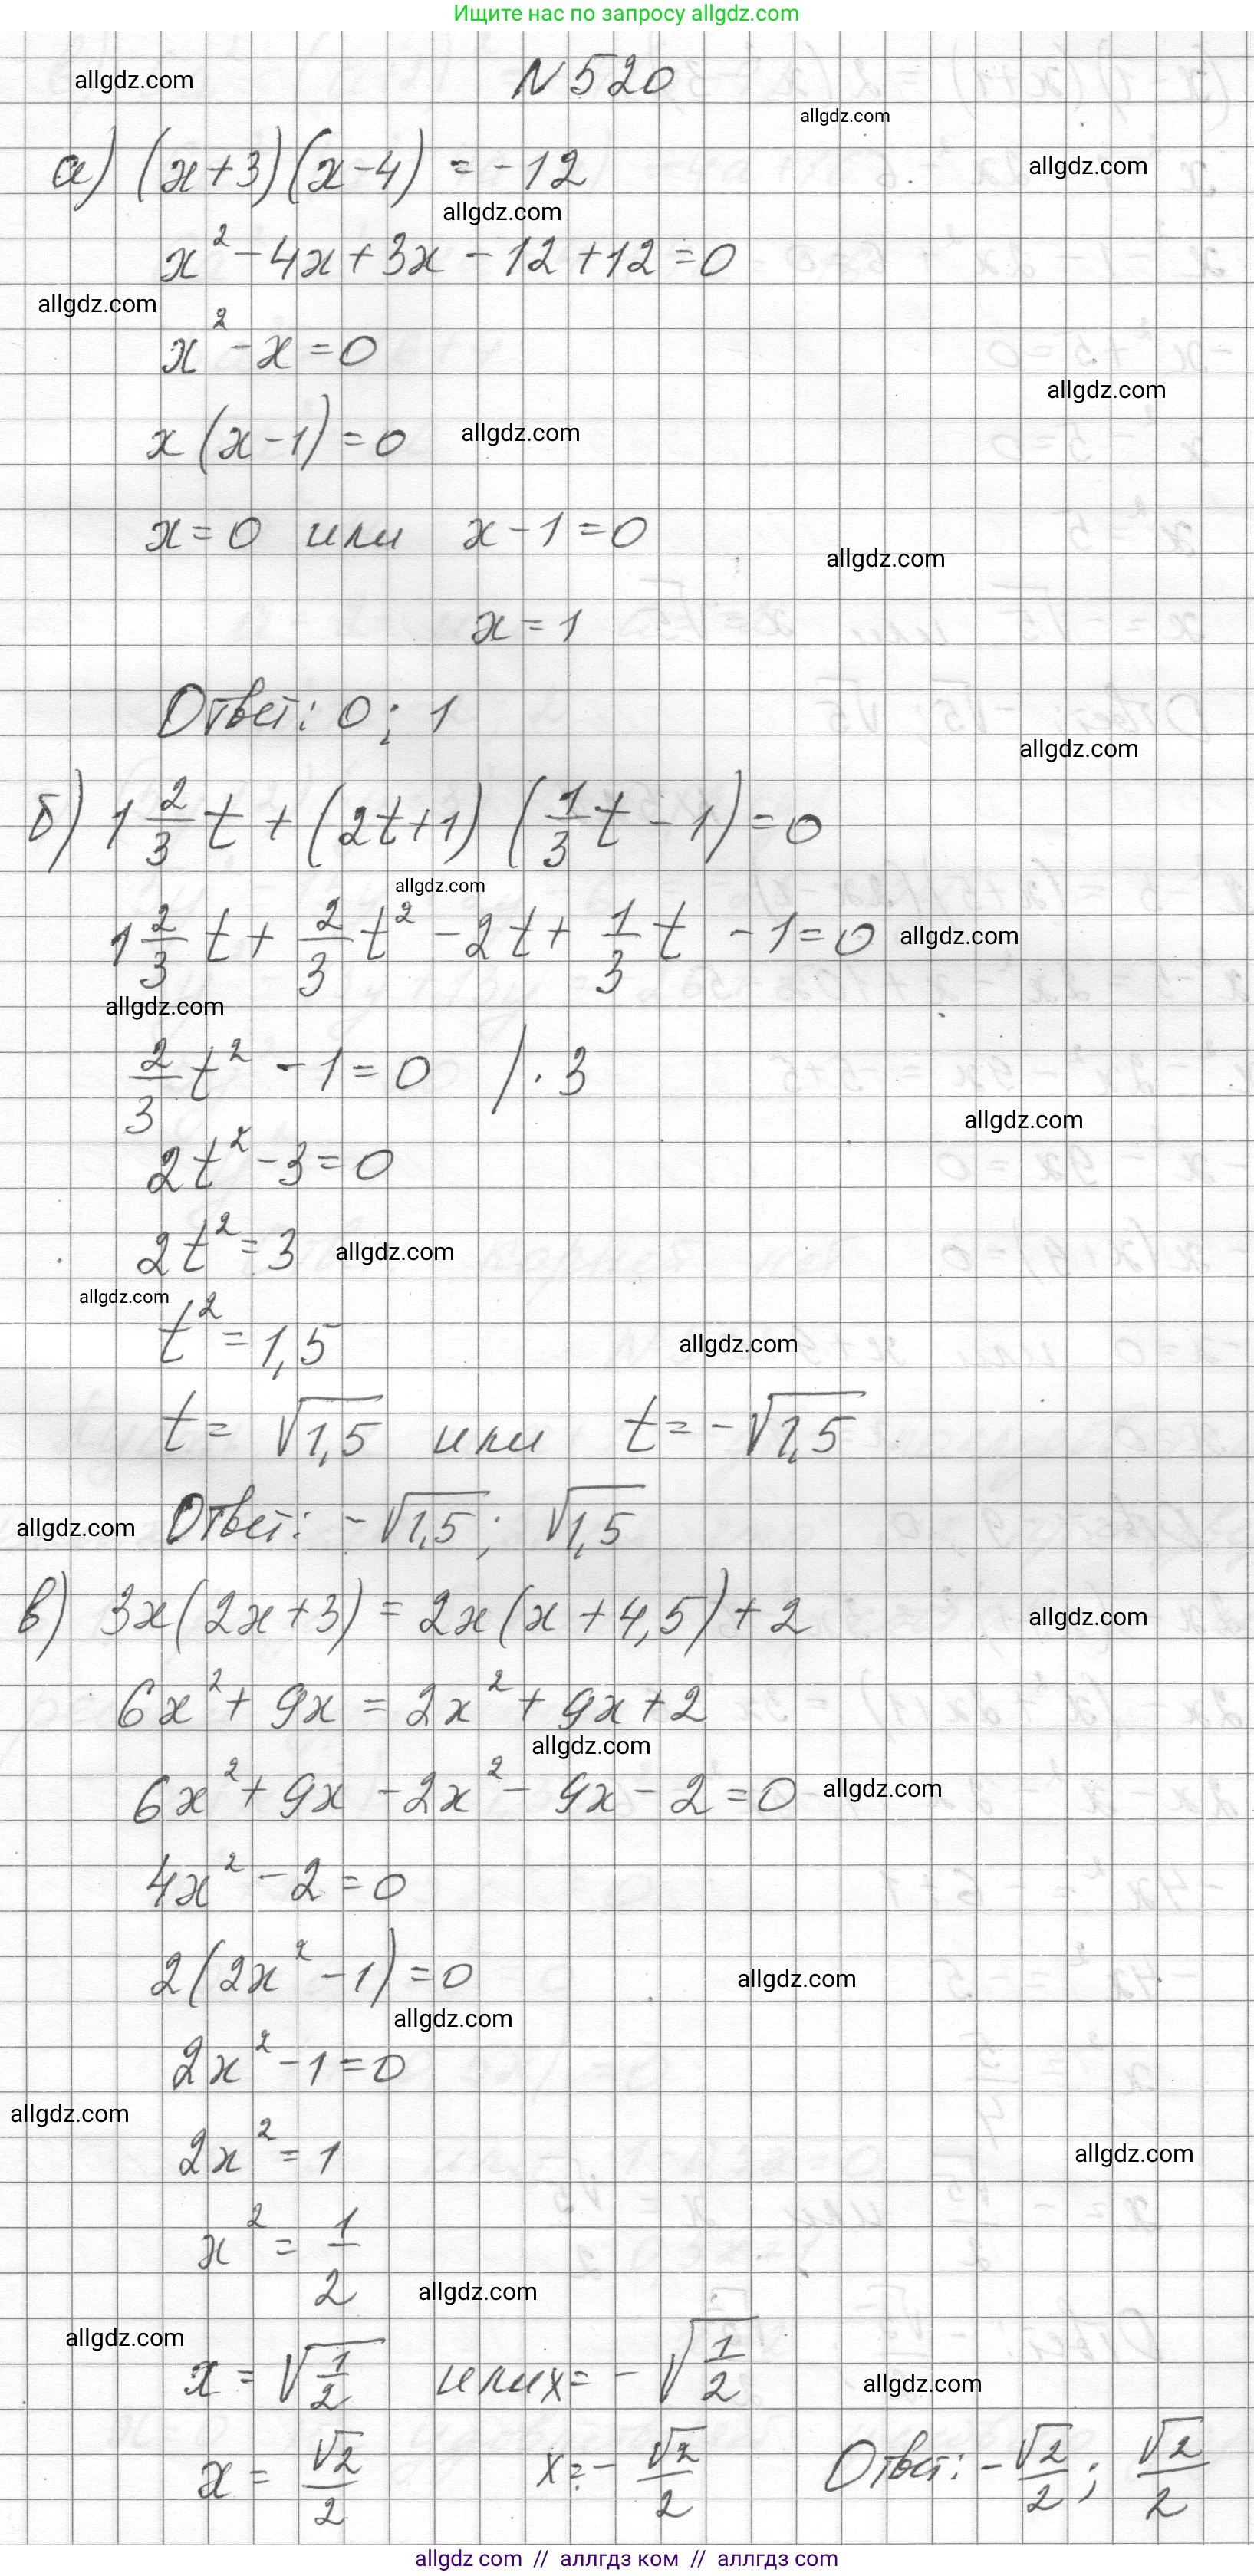 Ищите нас по запросу allgdz.com
N 520
allgdz.com
allgdz.com
а) (x+3)(x-4) = -12
allgdz.com
allgdz.com
x² - 4x + 3x - 12 + 12 = 0
allgdz.com
x² - x = 0
allgdz.com
x(x-1) = 0
allgdz.com
x = 0 или x - 1 = 0
allgdz.com
x = 1
Ответ: 0; 1
allgdz.com
б) 1 2/3 t + (2t+1)(1/3 t - 1) = 0
allgdz.com
1 2/3 t + 2/3 t² - 2t + 1/3 t - 1 = 0
allgdz.com
allgdz.com
2/3 t² - 1 = 0 / · 3
allgdz.com
2t² - 3 = 0
2t² = 3
allgdz.com
allgdz.com
t² = 1,5
allgdz.com
t = √1,5 или t = -√1,5
allgdz.com
Ответ: -√1,5; √1,5
в) 3x(2x+3) = 2x(x+4,5) + 2
allgdz.com
6x² + 9x = 2x² + 9x + 2
allgdz.com
6x² + 9x - 2x² - 9x - 2 = 0
allgdz.com
4x² - 2 = 0
2(2x² - 1) = 0
allgdz.com
allgdz.com
2x² - 1 = 0
allgdz.com
2x² = 1
allgdz.com
x² = 1/2
allgdz.com
allgdz.com
x = √1/2 или x = -√1/2
allgdz.com
x = √2/2 x = -√2/2 Ответ: -√2/2; √2/2
allgdz com // аллгдз ком // аллгдз com